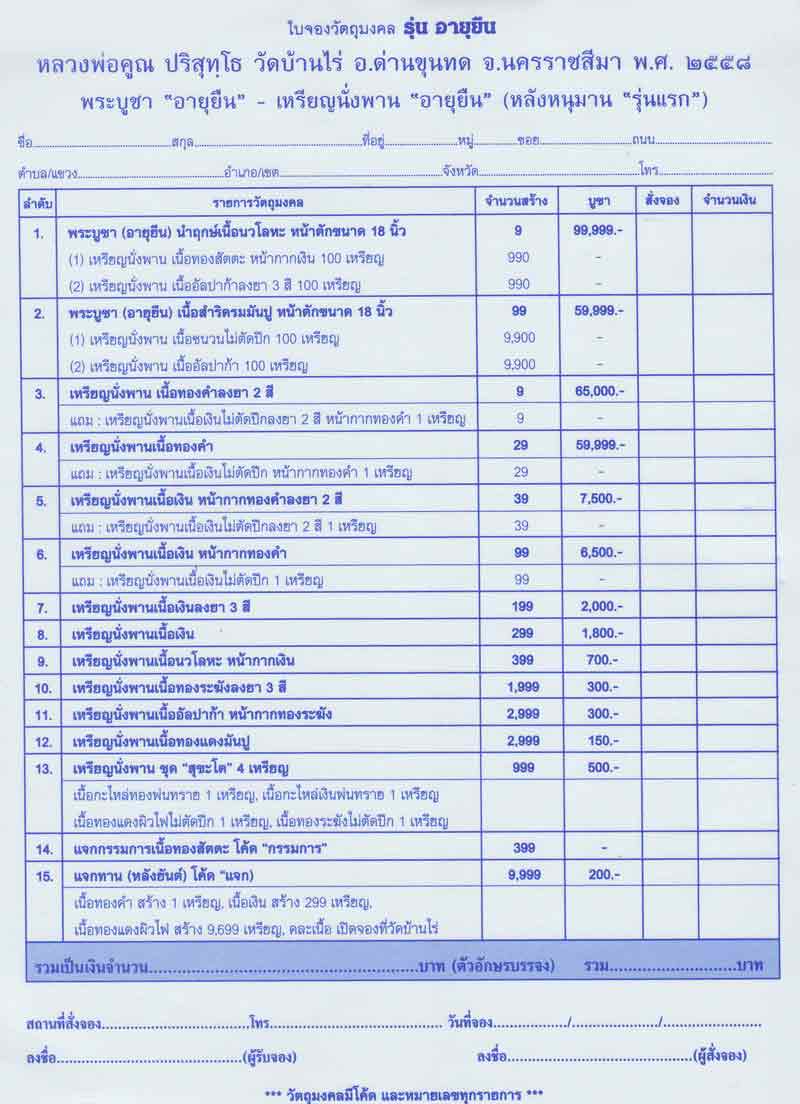 ใบจองวัตถุมงคล รุ่น อายุยืน
หลวงพ่อคูณ ปริสุทฺโธ วัดบ้านไร่ อ.ด่านขุนทด จ.นครราชสีมา พ.ศ. ๒๕๕๘
พระบูชา "อายุยืน" - เหรียญนั่งพาน "อายุยืน" (หลังหนุมาน "รุ่นแรก")
ชื่อ..........สกุล..........ที่อยู่..........หมู่..........ซอย..........ถนน..........
ตำบล/แขวง..........อำเภอ/เขต..........จังหวัด..........โทร..........
ลำดับ รายการวัตถุมงคล จำนวนสร้าง บูชา สั่งจอง จำนวนเงิน
1. พระบูชา (อายุยืน) นำฤกษ์เนื้อนวโลหะ หน้าตักขนาด 18 นิ้ว 9 99,999.-
(1) เหรียญนั่งพาน เนื้อทองสัตตะ หน้ากากเงิน 100 เหรียญ 990 -
(2) เหรียญนั่งพาน เนื้ออัลปาก้าลงยา 3 สี 100 เหรียญ 990 -
2. พระบูชา (อายุยืน) เนื้อสำริดรมมันปู หน้าตักขนาด 18 นิ้ว 99 59,999.-
(1) เหรียญนั่งพาน เนื้อชนวนไม่ตัดปีก 100 เหรียญ 9,900 -
(2) เหรียญนั่งพาน เนื้ออัลปาก้า 100 เหรียญ 9,900 -
3. เหรียญนั่งพาน เนื้อทองคำลงยา 2 สี 9 65,000.-
แถม : เหรียญนั่งพานเนื้อเงินไม่ตัดปีกลงยา 2 สี หน้ากากทองคำ 1 เหรียญ 9 -
4. เหรียญนั่งพานเนื้อทองคำ 29 59,999.-
แถม : เหรียญนั่งพานเนื้อเงินไม่ตัดปีก หน้ากากทองคำ 1 เหรียญ 29 -
5. เหรียญนั่งพานเนื้อเงิน หน้ากากทองคำลงยา 2 สี 39 7,500.-
แถม : เหรียญนั่งพานเนื้อเงินไม่ตัดปีกลงยา 2 สี 1 เหรียญ 39 -
6. เหรียญนั่งพานเนื้อเงิน หน้ากากทองคำ 99 6,500.-
แถม : เหรียญนั่งพานเนื้อเงินไม่ตัดปีก 1 เหรียญ 99 -
7. เหรียญนั่งพานเนื้อเงินลงยา 3 สี 199 2,000.-
8. เหรียญนั่งพานเนื้อเงิน 299 1,800.-
9. เหรียญนั่งพานเนื้อนวโลหะ หน้ากากเงิน 399 700.-
10. เหรียญนั่งพานเนื้อทองระฆังลงยา 3 สี 1,999 300.-
11. เหรียญนั่งพานเนื้ออัลปาก้า หน้ากากทองระฆัง 2,999 300.-
12. เหรียญนั่งพานเนื้อทองแดงมันปู 2,999 150.-
13. เหรียญนั่งพาน ชุด "สุขะโต" 4 เหรียญ 999 500.-
เนื้อกะไหล่ทองพ่นทราย 1 เหรียญ, เนื้อกะไหล่เงินพ่นทราย 1 เหรียญ
เนื้อทองแดงผิวไฟไม่ตัดปีก 1 เหรียญ, เนื้อทองระฆังไม่ตัดปีก 1 เหรียญ
14. แจกกรรมการเนื้อทองสัตตะ โค้ด "กรรมการ" 399 -
15. แจกทาน (หลังยันต์) โค้ด "แจก" 9,999 200.-
เนื้อทองคำ สร้าง 1 เหรียญ, เนื้อเงิน สร้าง 299 เหรียญ,
เนื้อทองแดงผิวไฟ สร้าง 9,699 เหรียญ, คละเนื้อ เปิดจองที่วัดบ้านไร่
รวมเป็นเงินจำนวน..........บาท (ตัวอักษรบรรจง) รวม..........บาท
สถานที่สั่งจอง..........โทร.......... วันที่จอง........../........../..........
ลงชื่อ..........(ผู้รับจอง) ลงชื่อ..........(ผู้สั่งจอง)
*** วัตถุมงคลมีโค้ด และหมายเลขทุกรายการ ***